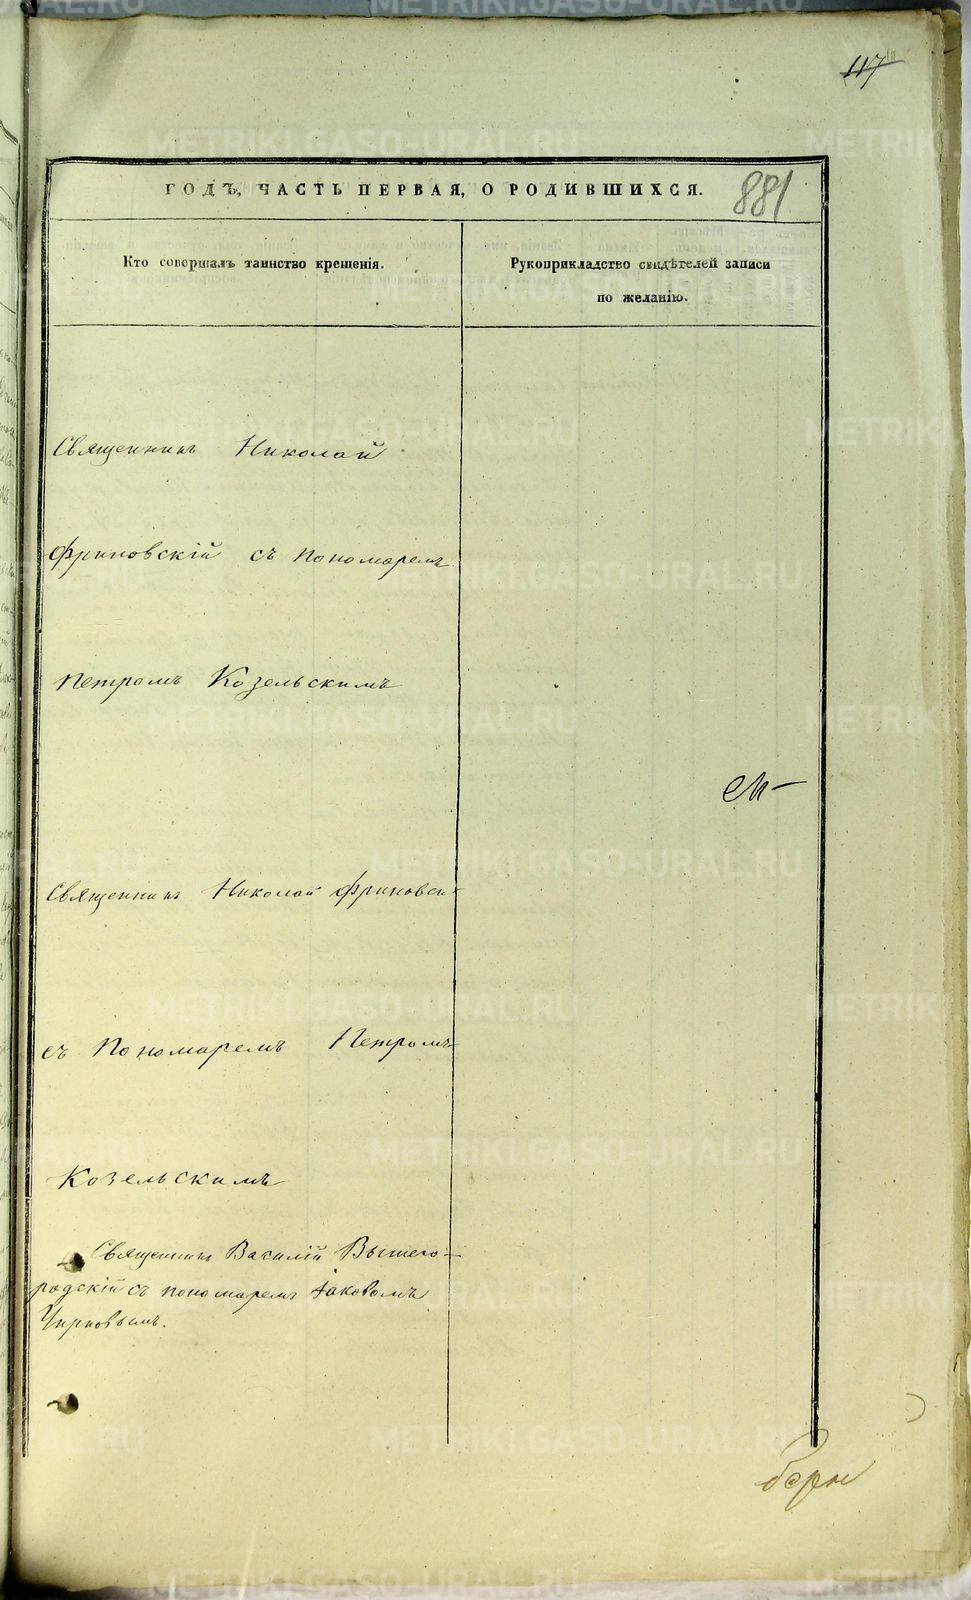 117
ГОДЪ, ЧАСТЬ ПЕРВАЯ, О РОДИВШИХСЯ.
881
Кто совершалъ таинство крещенія.
Рукоприкладство свидѣтелей записи
по желанію.
Священникъ Николай
Фриновскій съ пономаремъ
Петромъ Козельскимъ
Священникъ Николай Фриновскі
съ Пономаремъ Петромъ
Козельскимъ
Священникъ Василій Вышего-
родскій съ пономаремъ Іаковомъ
METRIKI.GASO-URAL.RU